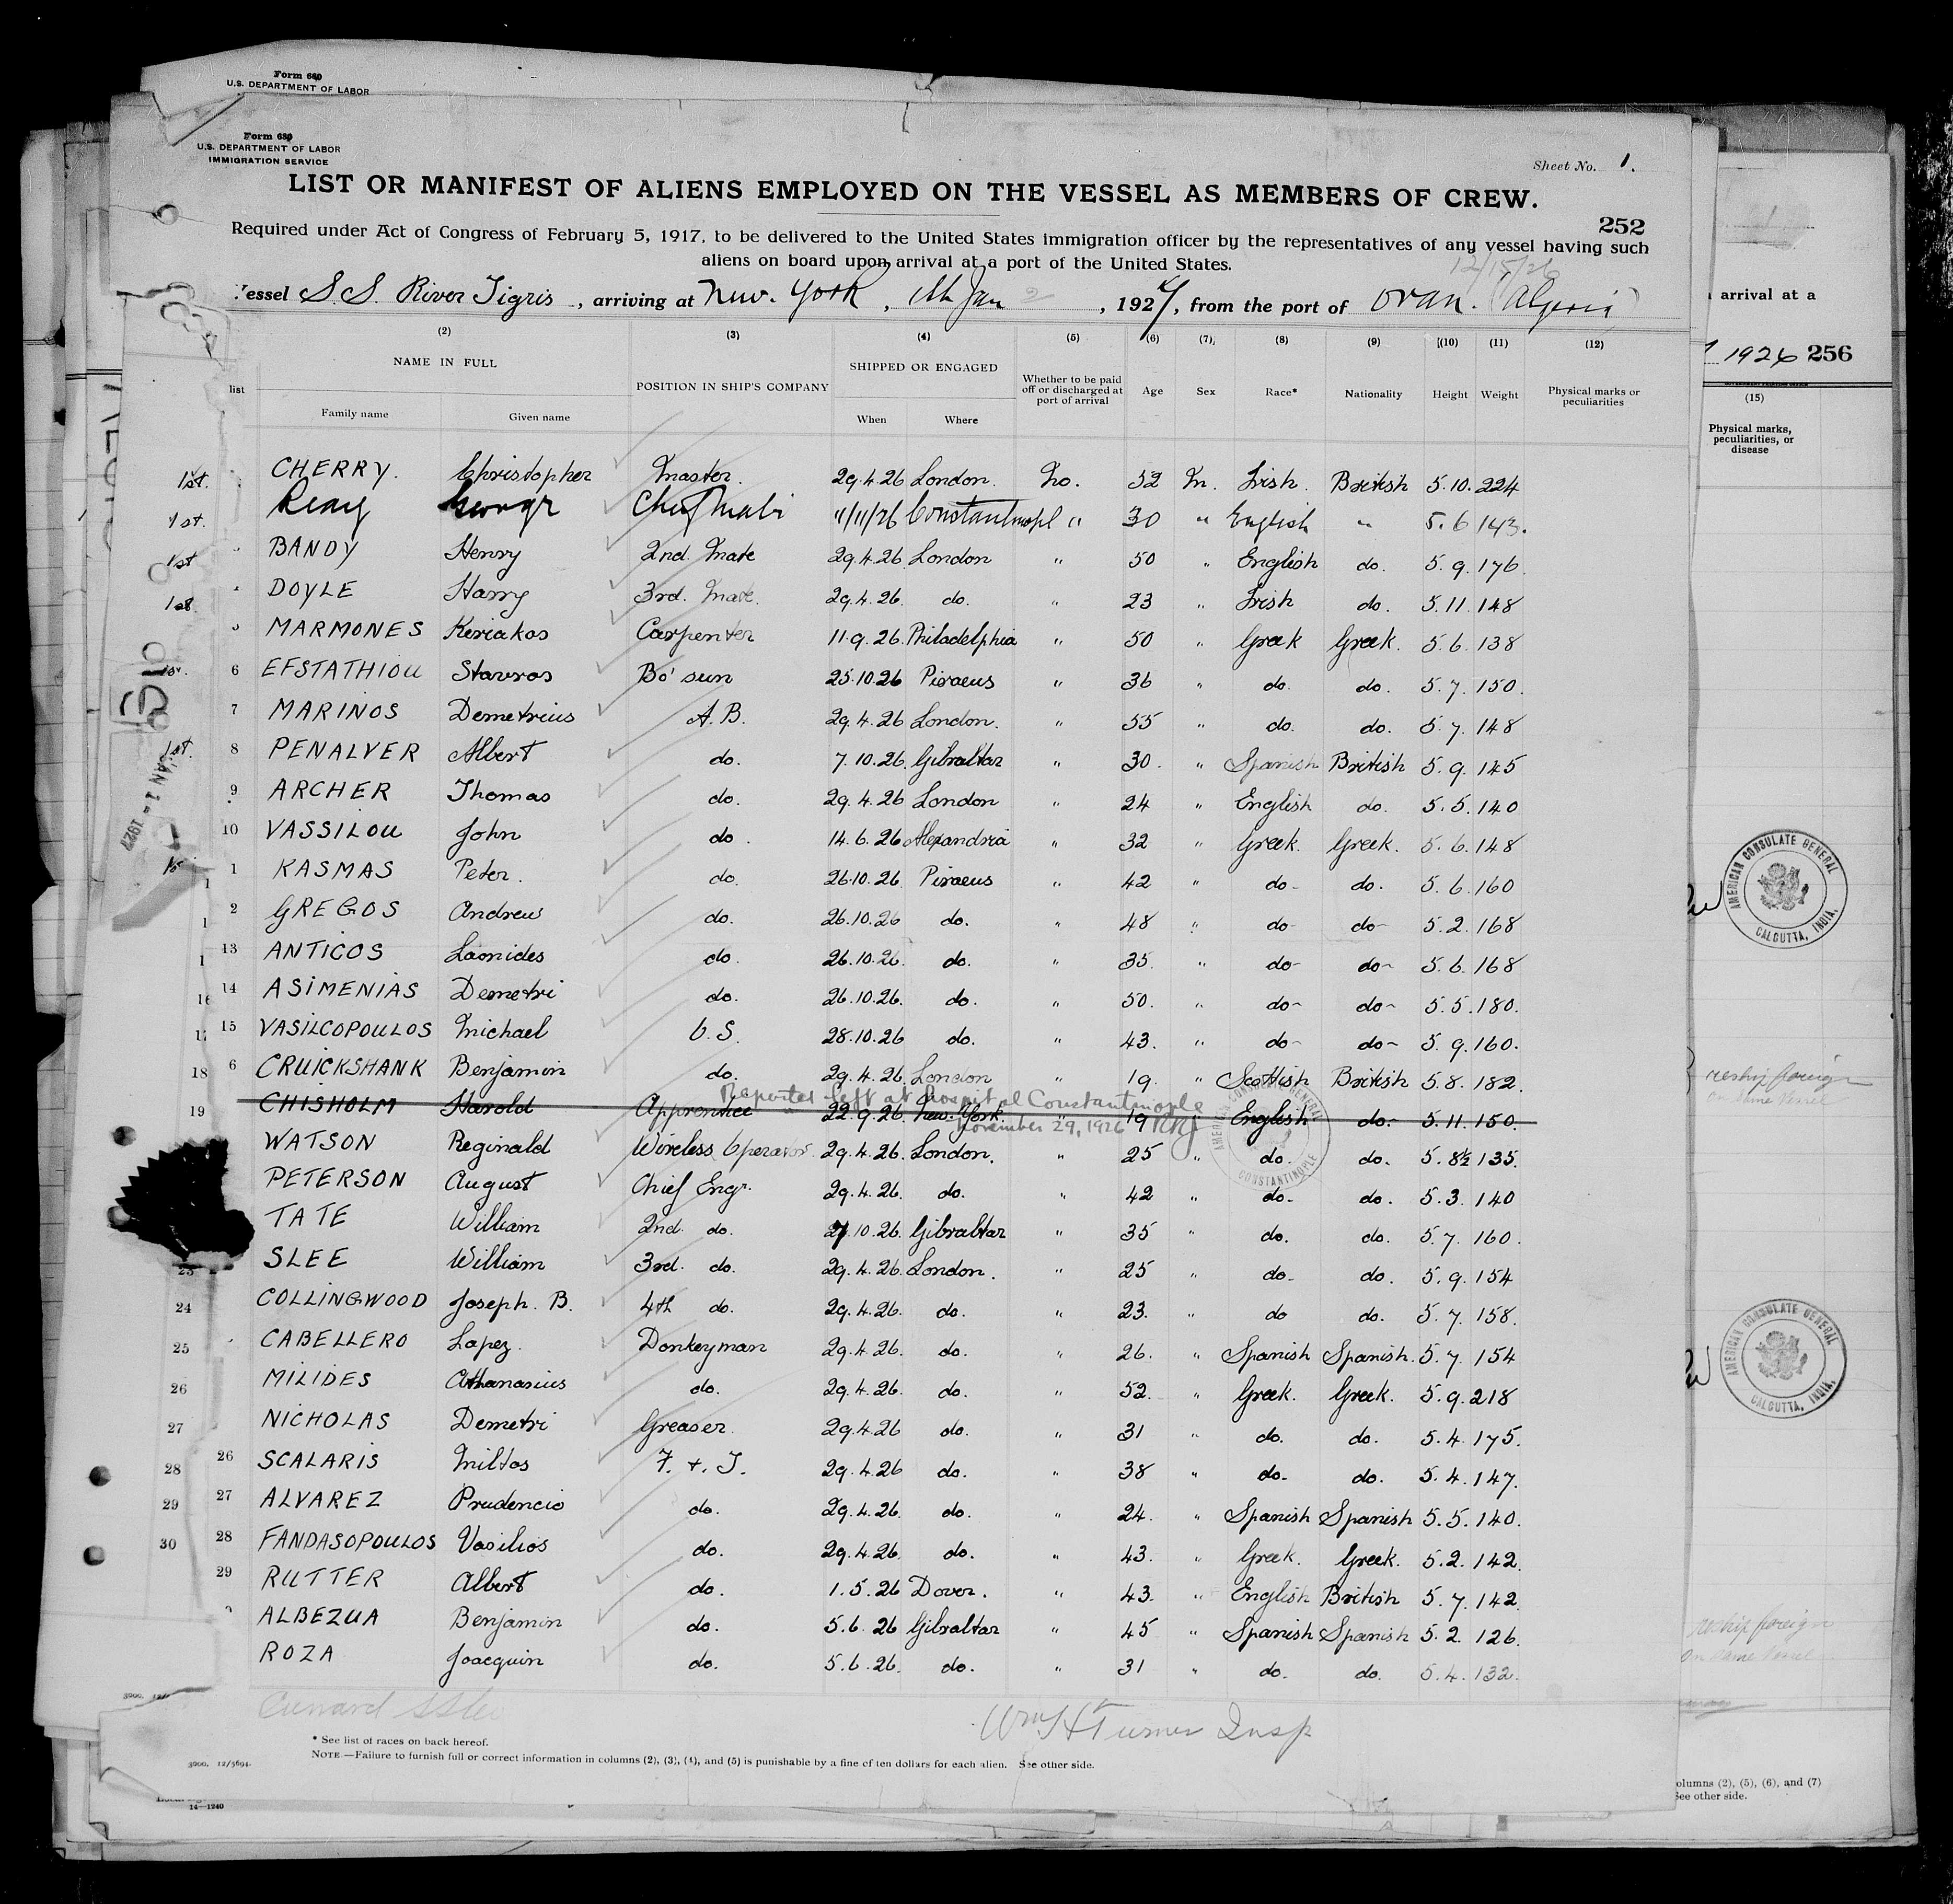 Form 680
U.S. DEPARTMENT OF LABOR
Form 680
U.S. DEPARTMENT OF LABOR
IMMIGRATION SERVICE
Sheet No. 1.
LIST OR MANIFEST OF ALIENS EMPLOYED ON THE VESSEL AS MEMBERS OF CREW.
252
Required under Act of Congress of February 5, 1917, to be delivered to the United States immigration officer by the representatives of any vessel having such
aliens on board upon arrival at a port of the United States.
12/15/26
Vessel S.S. River Tigris, arriving at New York, Jan 2, 1927, from the port of Oran. (Algeria)
arrival at a
1926 256
(2) (3) (4) (5) (6) (7) (8) (9) (10) (11) (12)
NAME IN FULL POSITION IN SHIP'S COMPANY SHIPPED OR ENGAGED Whether to be paid off or discharged at port of arrival Age Sex Race* Nationality Height Weight Physical marks or peculiarities
list Family name Given name When Where
(15)
Physical marks, peculiarities, or disease
1st. CHERRY. Christopher Master. 29.4.26 London. No. 52 M. Irish. British 5.10. 224
1st. Reay George Chief Mate 11/11/26 Constantinople " 30 " English " 5.6 143.
1st BANDY Henry 2nd. Mate 29.4.26 London " 50 " English do. 5.9. 176.
1st. DOYLE Harry 3rd. Mate. 29.4.26. do. " 23 " Irish do. 5.11. 148
MARMONES Keriakos Carpenter 11.9.26. Philadelphia " 50 " Greek Greek. 5.6. 138
6 EFSTATHIOU Stavros Bo'sun 25.10.26 Piraeus " 36 " do. do. 5.7. 150.
7 MARINOS Demetrius A.B. 29.4.26 London. " 55 " do. do. 5.7. 148
1st. 8 PENALVER Albert do. 7.10.26. Gibraltar " 30. " Spanish British 5.9. 145
9 ARCHER Thomas do. 29.4.26 London " 24 " English do. 5.5. 140
10 VASSILOU John do. 14.6.26 Alexandria " 32 " Greek. Greek. 5.6. 148
1 KASMAS Peter. do. 26.10.26. Piraeus " 42 " do- do. 5.6. 160
2 GREGOS Andrew do. 26.10.26 do. " 48 " do- do- 5.2. 168
13 ANTICOS Leonides do. 26.10.26. do. " 35. " do- do- 5.6. 168
14 ASIMENIAS Demetri do. 26.10.26. do. " 50. " do- do- 5.5. 180.
15 VASILCOPOULOS Michael O.S. 28.10.26 do. " 43. " do- do- 5.9. 160.
18 6 CRUICKSHANK Benjamin do. 29.4.26. London " 19. " Scottish British 5.8. 182.
Reported left at hospital Constantinople
19 CHISHOLM Harold Apprentice " 22.9.26. New York. " 19 " English do- 5.11. 150.
November 29, 1926
WATSON Reginald Wireless Operator. 29.4.26. London. " 25 " do. do. 5.8½ 135.
PETERSON August Chief Engr. 29.4.26. do. " 42 " do- do. 5.3. 140
TATE William 2nd. do. 7.10.26. Gibraltar " 35 " do. do. 5.7. 160.
23 SLEE William 3rd. do. 29.4.26. London. " 25 " do- do. 5.9. 154
24 COLLINGWOOD Joseph. B. 4th do. 29.4.26. do. " 23. " do do. 5.7. 158.
25 CABELLERO Lopez. Donkeyman 29.4.26. do. " 26. " Spanish Spanish. 5.7. 154
26 MILIDES Athanasius do. 29.4.26. do. " 52. " Greek. Greek. 5.9. 218
27 NICHOLAS Demetri Greaser. 29.4.26 do. " 31 " do. do. 5.4. 175.
28 26 SCALARIS Miltos F. + T. 29.4.26 do. " 38 " do- do. 5.4. 147.
29 27 ALVAREZ Prudencio do. 29.4.26. do. " 24. " Spanish Spanish 5.5. 140.
30 28 FANDASOPOULOS Vasilios do. 29.4.26. do. " 43. " Greek. Greek. 5.2. 142.
29 RUTTER Albert do. 1.5.26 Dover. " 43. " English British 5.7. 142.
ALBEZUA Benjamin do. 5.6.26 Gibraltar " 45 " Spanish Spanish 5.2. 126.
ROZA Joacquin do. 5.6.26. do. " 31 " do. do. 5.4. 132.
JAN 1927
AMERICAN CONSULATE GENERAL
CONSTANTINOPLE
AMERICAN CONSULATE GENERAL
CALCUTTA, INDIA.
reship foreign
on same vessel
AMERICAN CONSULATE GENERAL
CALCUTTA, INDIA.
reship foreign
on same vessel
Cunard SS
Wm H Turner Insp
* See list of races on back hereof.
NOTE.—Failure to furnish full or correct information in columns (2), (3), (4), and (5) is punishable by a fine of ten dollars for each alien. See other side.
3900. 12/5694.
14—1240
olumns (2), (5), (6), and (7)
See other side.